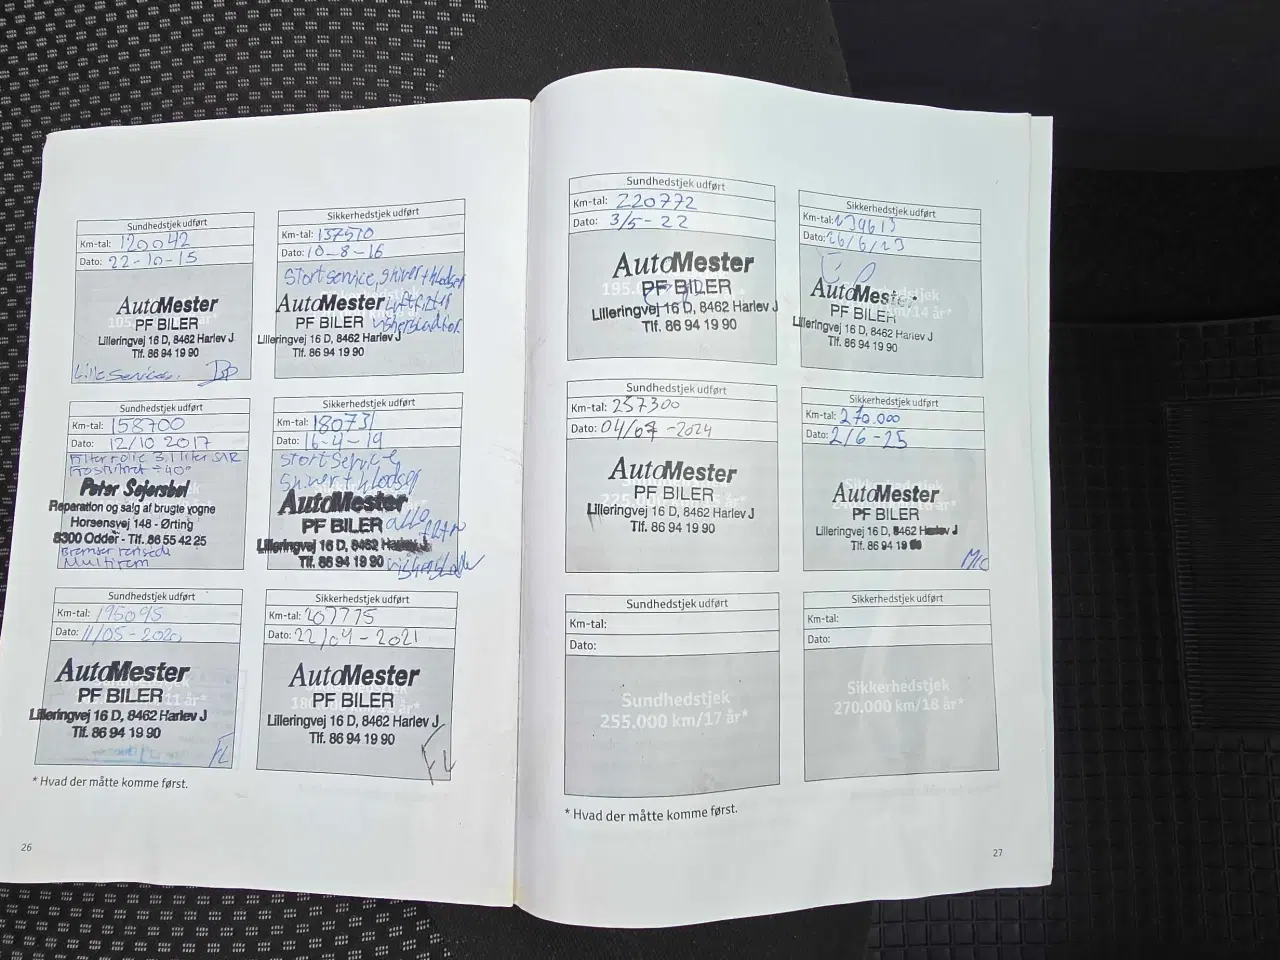 Sundhedstjek udført
Km-tal: 120042
Dato: 22-10-15
AutoMester
PF BILER
Lilleringvej 16 D, 8462 Harlev J
Tlf. 86 94 19 90
Lille Service.
Sikkerhedstjek udført
Km-tal: 137510
Dato: 10-8-16
Stort service, skiver + klodser
AutoMester Luftfilter
PF BILER
Lilleringvej 16 D, 8462 Harlev J
Tlf. 86 94 19 90
Sundhedstjek udført
Km-tal: 158700
Dato: 12/10 2017
Filter + olie 3,1 liter
Frostvæske ÷ 40°
Peter Sejersbøl
Reparation og salg af brugte vogne
Horsensvej 148 - Ørting
8300 Odder - Tlf. 86 55 42 25
Bremser rensede
Sikkerhedstjek udført
Km-tal: 180731
Dato: 16-4-19
stort Service
skiver + klodser
AutoMester
PF BILER alle
Lilleringvej 16 D, 8462 Harlev J filtre
Tlf. 86 94 19 90
Sundhedstjek udført
Km-tal: 195095
Dato: 11/05-2020
AutoMester
PF BILER
Lilleringvej 16 D, 8462 Harlev J
Tlf. 86 94 19 90
FL
Sikkerhedstjek udført
Km-tal: 207775
Dato: 22/04-2021
AutoMester
PF BILER
Lilleringvej 16 D, 8462 Harlev J
Tlf. 86 94 19 90
FL
* Hvad der måtte komme først.
26
Sundhedstjek udført
Km-tal: 220772
Dato: 3/5-22
AutoMester
PF BILER
Lilleringvej 16 D, 8462 Harlev J
Tlf. 86 94 19 90
Sikkerhedstjek udført
Km-tal: 239613
Dato: 26/6/23
AutoMester
PF BILER
Lilleringvej 16 D, 8462 Harlev J
Tlf. 86 94 19 90
Sundhedstjek udført
Km-tal: 257300
Dato: 04/07-2024
AutoMester
PF BILER
Lilleringvej 16 D, 8462 Harlev J
Tlf. 86 94 19 90
Sikkerhedstjek udført
Km-tal: 270.000
Dato: 2/6-25
AutoMester
PF BILER
Lilleringvej 16 D, 8462 Harlev J
Tlf. 86 94 19
Sundhedstjek udført
Km-tal:
Dato:
Sundhedstjek
255.000 km/17 år*
Sikkerhedstjek udført
Km-tal:
Dato:
Sikkerhedstjek
270.000 km/18 år*
* Hvad der måtte komme først.
27